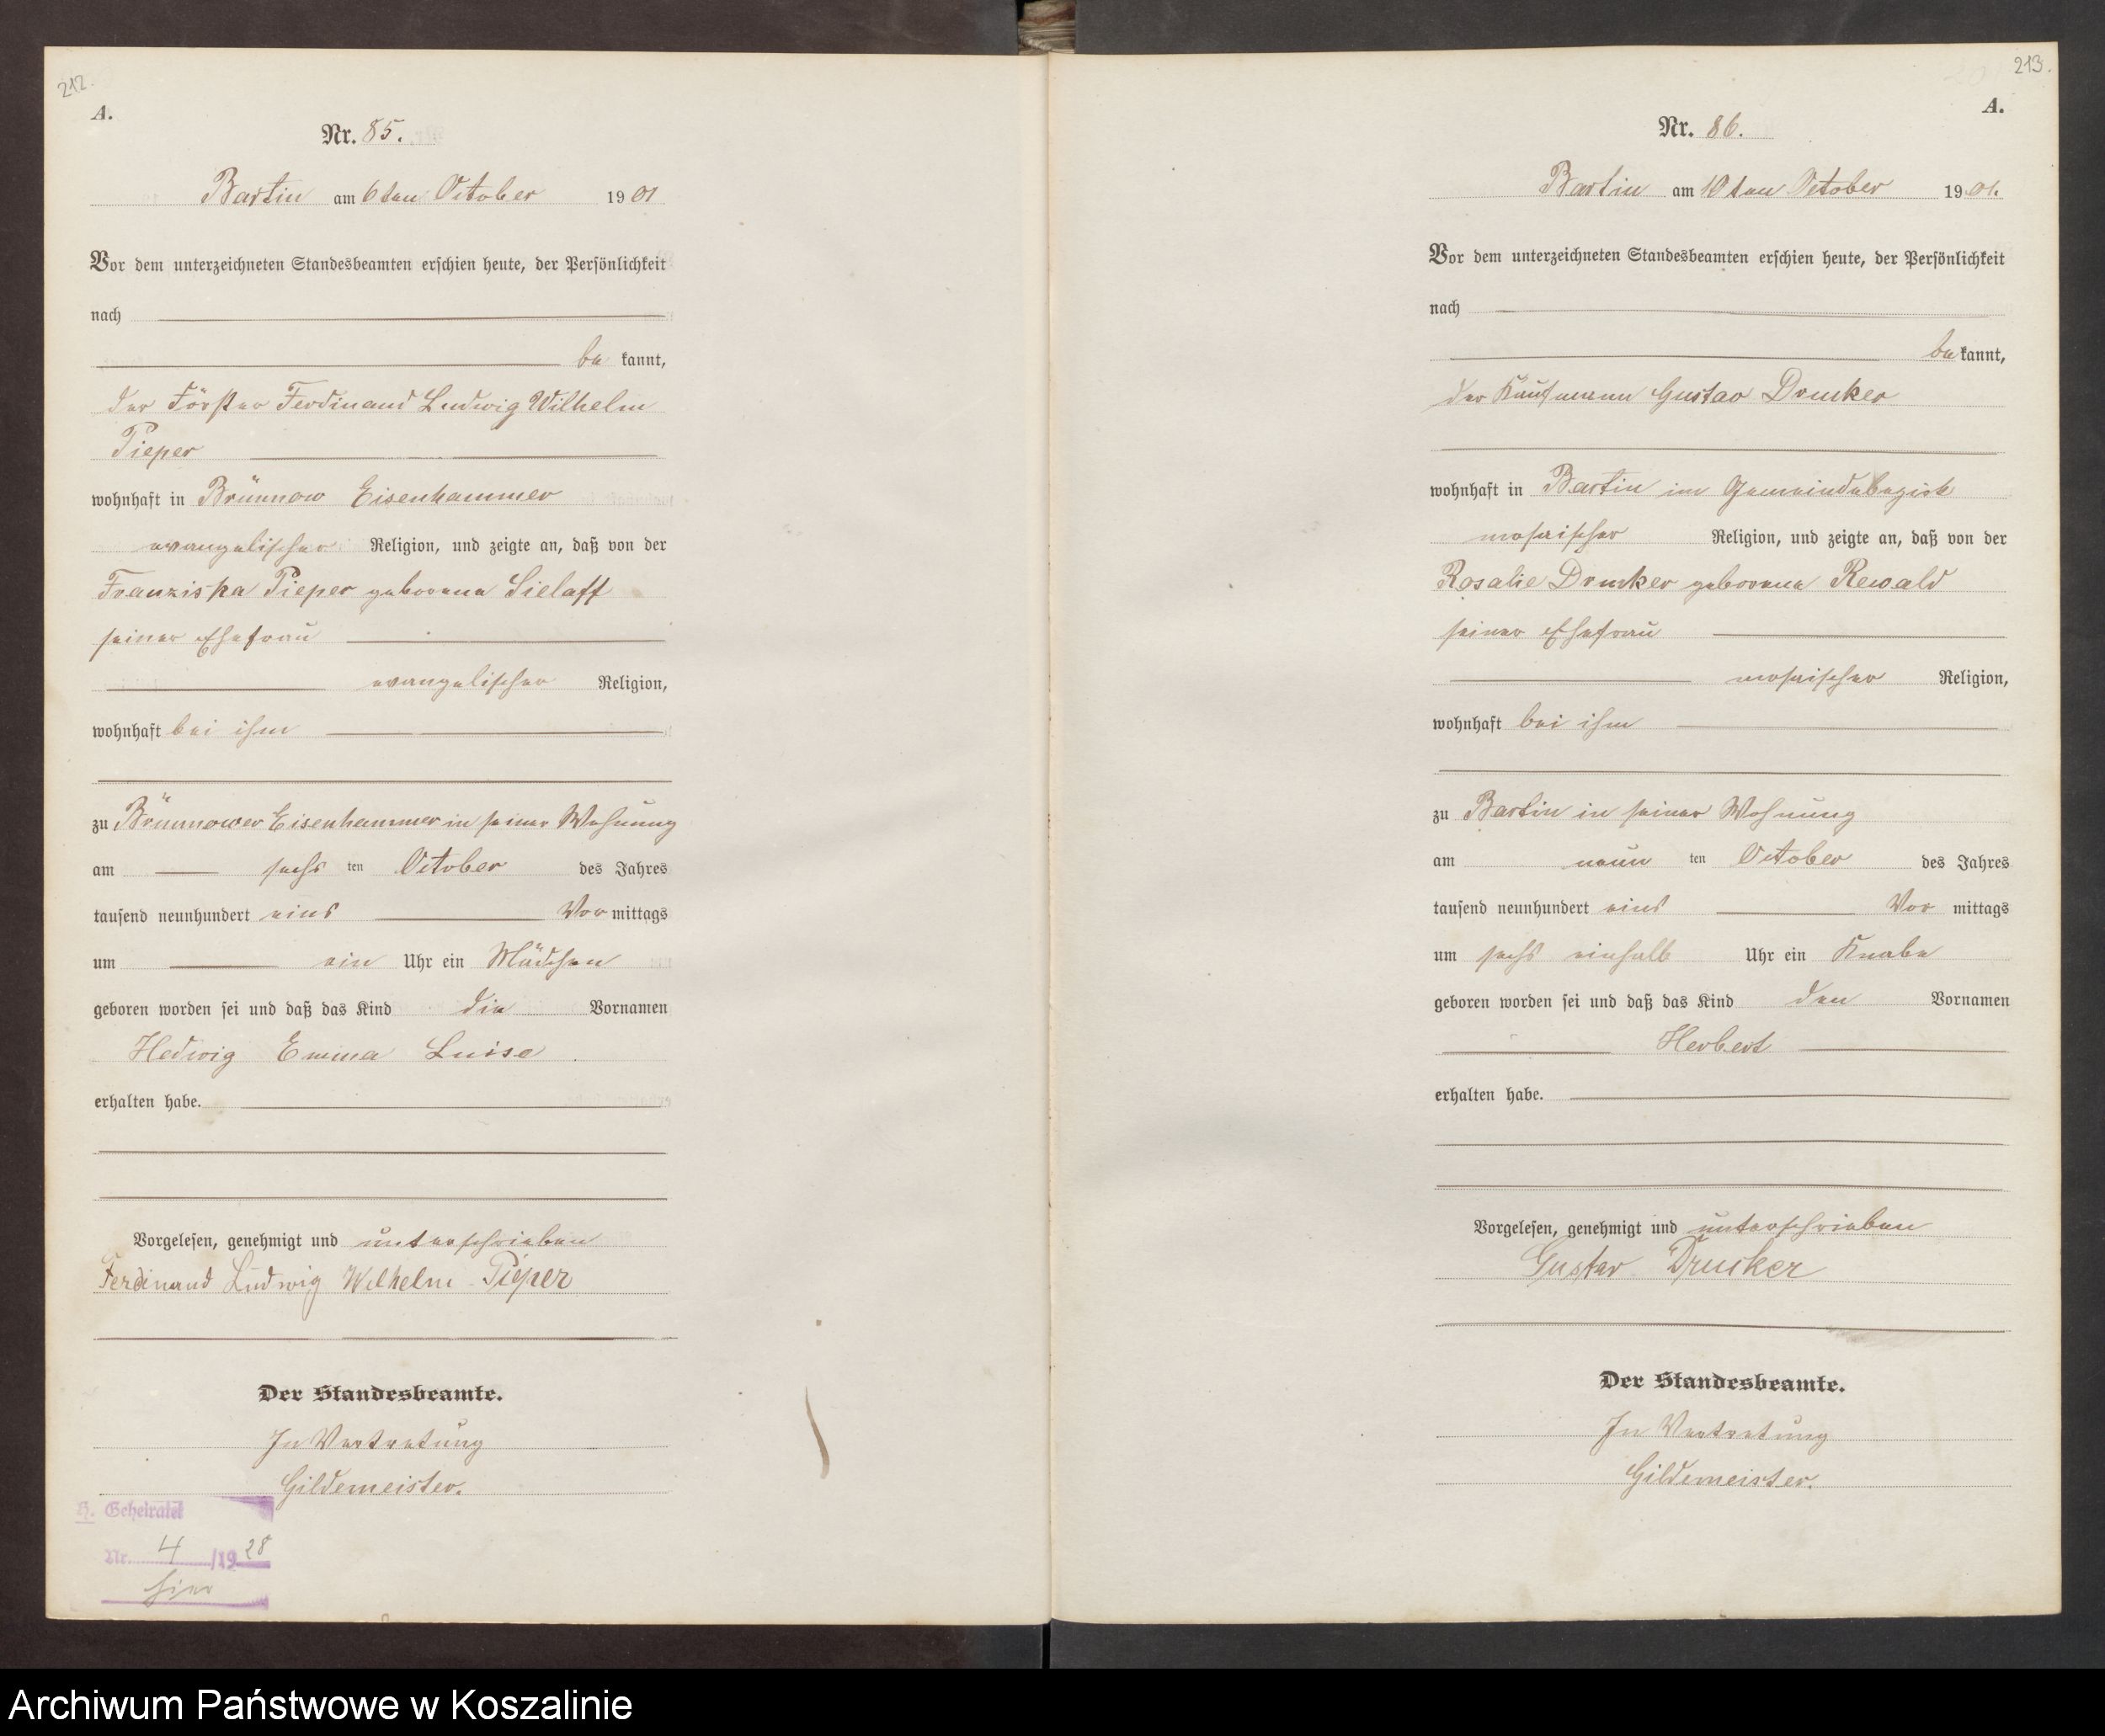 212.
A.
Nr. 85.
Bartin am 6ten October 1901
Vor dem unterzeichneten Standesbeamten erschien heute, der Persönlichkeit
nach
be kannt,
der Förster Ferdinand Ludwig Wilhelm
Pieper
wohnhaft in Brünnow Eisenhammer
evangelischer Religion, und zeigte an, daß von der
Franziska Pieper geborene Sielaff
seiner Ehefrau
evangelischer Religion,
wohnhaft bei ihm
zu Brünnower Eisenhammer in seiner Wohnung
am sechs ten October des Jahres
tausend neunhundert eins Vor mittags
um ein Uhr ein Mädchen
geboren worden sei und daß das Kind die Vornamen
Hedwig Emma Luise
erhalten habe.
Vorgelesen, genehmigt und unterschrieben
Ferdinand Ludwig Wilhelm Pieper
Der Standesbeamte.
In Vertretung
Gildemeister.
H. Geheiratet
Nr. 4 /1928
hier
213.
A.
Nr. 86.
Bartin am 10ten October 1901.
Vor dem unterzeichneten Standesbeamten erschien heute, der Persönlichkeit
nach
be kannt,
der Kaufmann Gustav Drucker
wohnhaft in Bartin im Gemeindebezirk
mosaischer Religion, und zeigte an, daß von der
Rosalie Drucker geborene Rewald
seiner Ehefrau
mosaischer Religion,
wohnhaft bei ihm
zu Bartin in seiner Wohnung
am neun ten October des Jahres
tausend neunhundert eins Vor mittags
um sechs einhalb Uhr ein Knabe
geboren worden sei und daß das Kind den Vornamen
Herbert
erhalten habe.
Vorgelesen, genehmigt und unterschrieben
Gustav Drucker
Der Standesbeamte.
In Vertretung
Gildemeister.
Archiwum Państwowe w Koszalinie